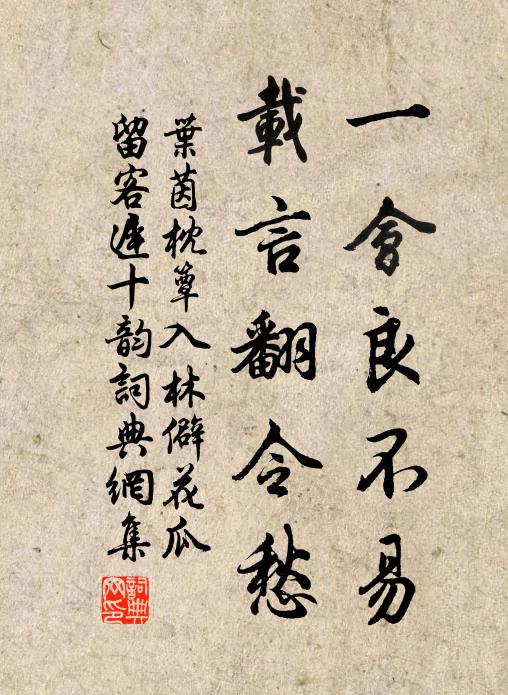 一會良不易
載言翻合愁
葉茵枕簟入林僻花瓜
留客遲十韵詞典網集
詞典網印